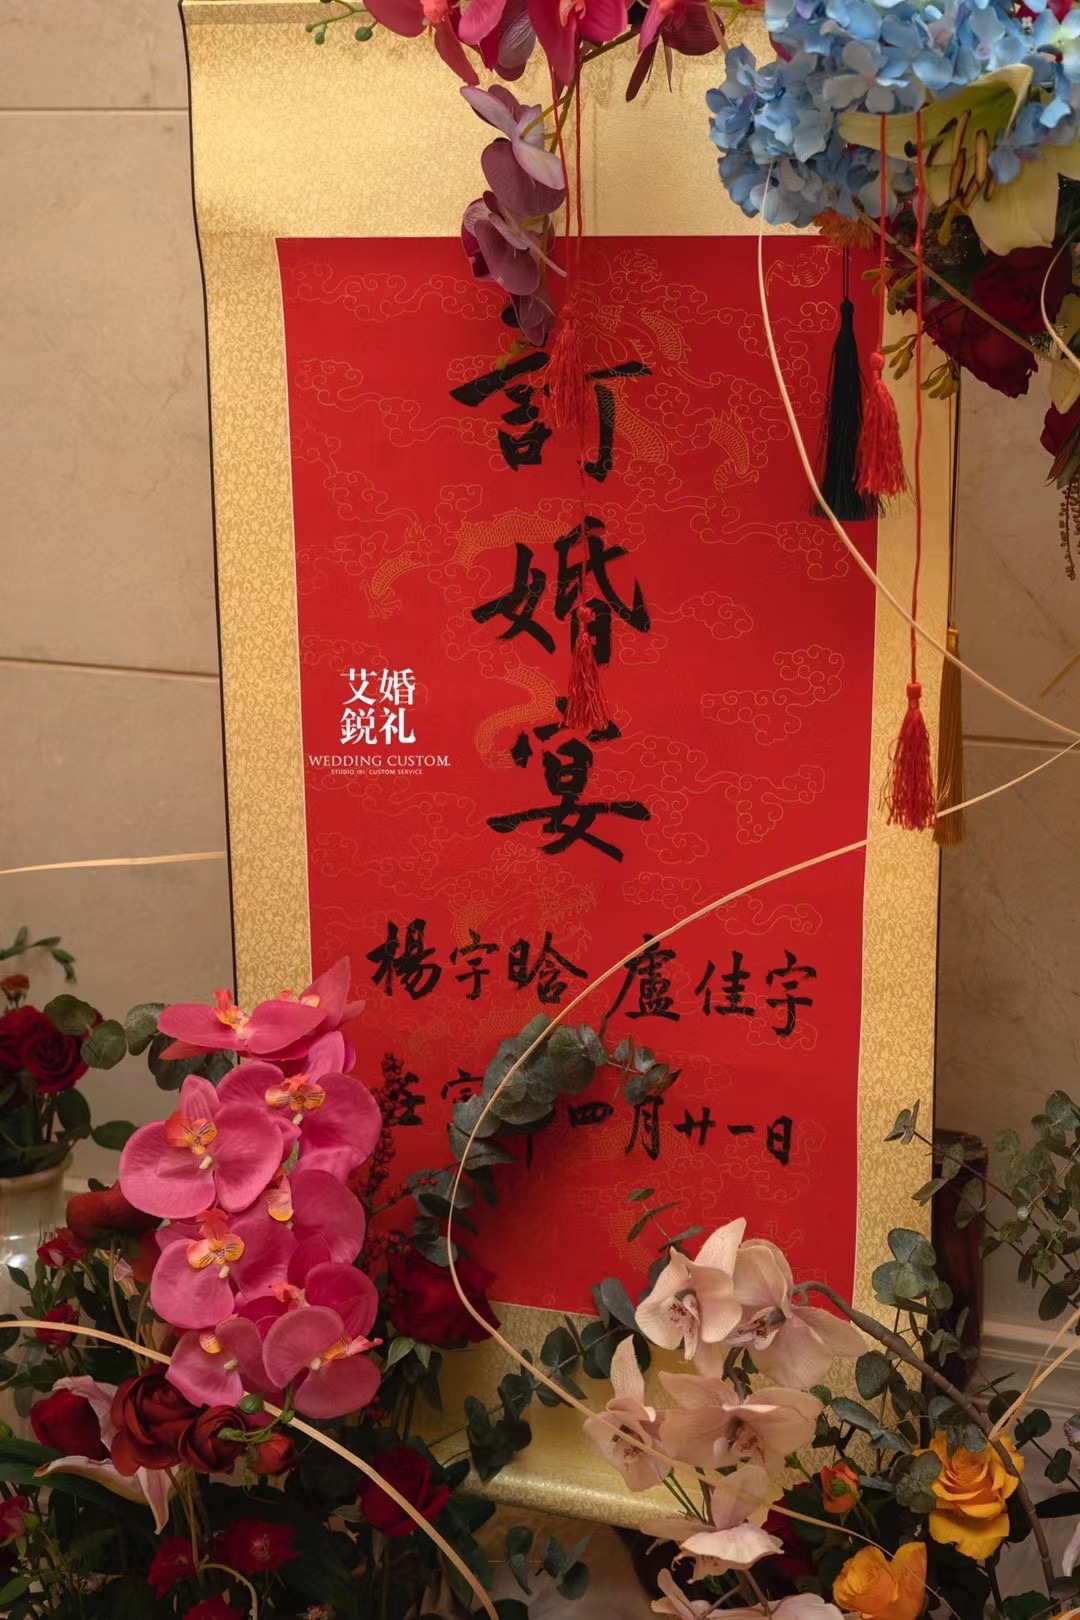 訂婚宴
楊宇晗 盧佳宇
壬寅年四月廿一日
艾婚
鋭礼
WEDDING CUSTOM.
STUDIO IRI. CUSTOM SERVICE.